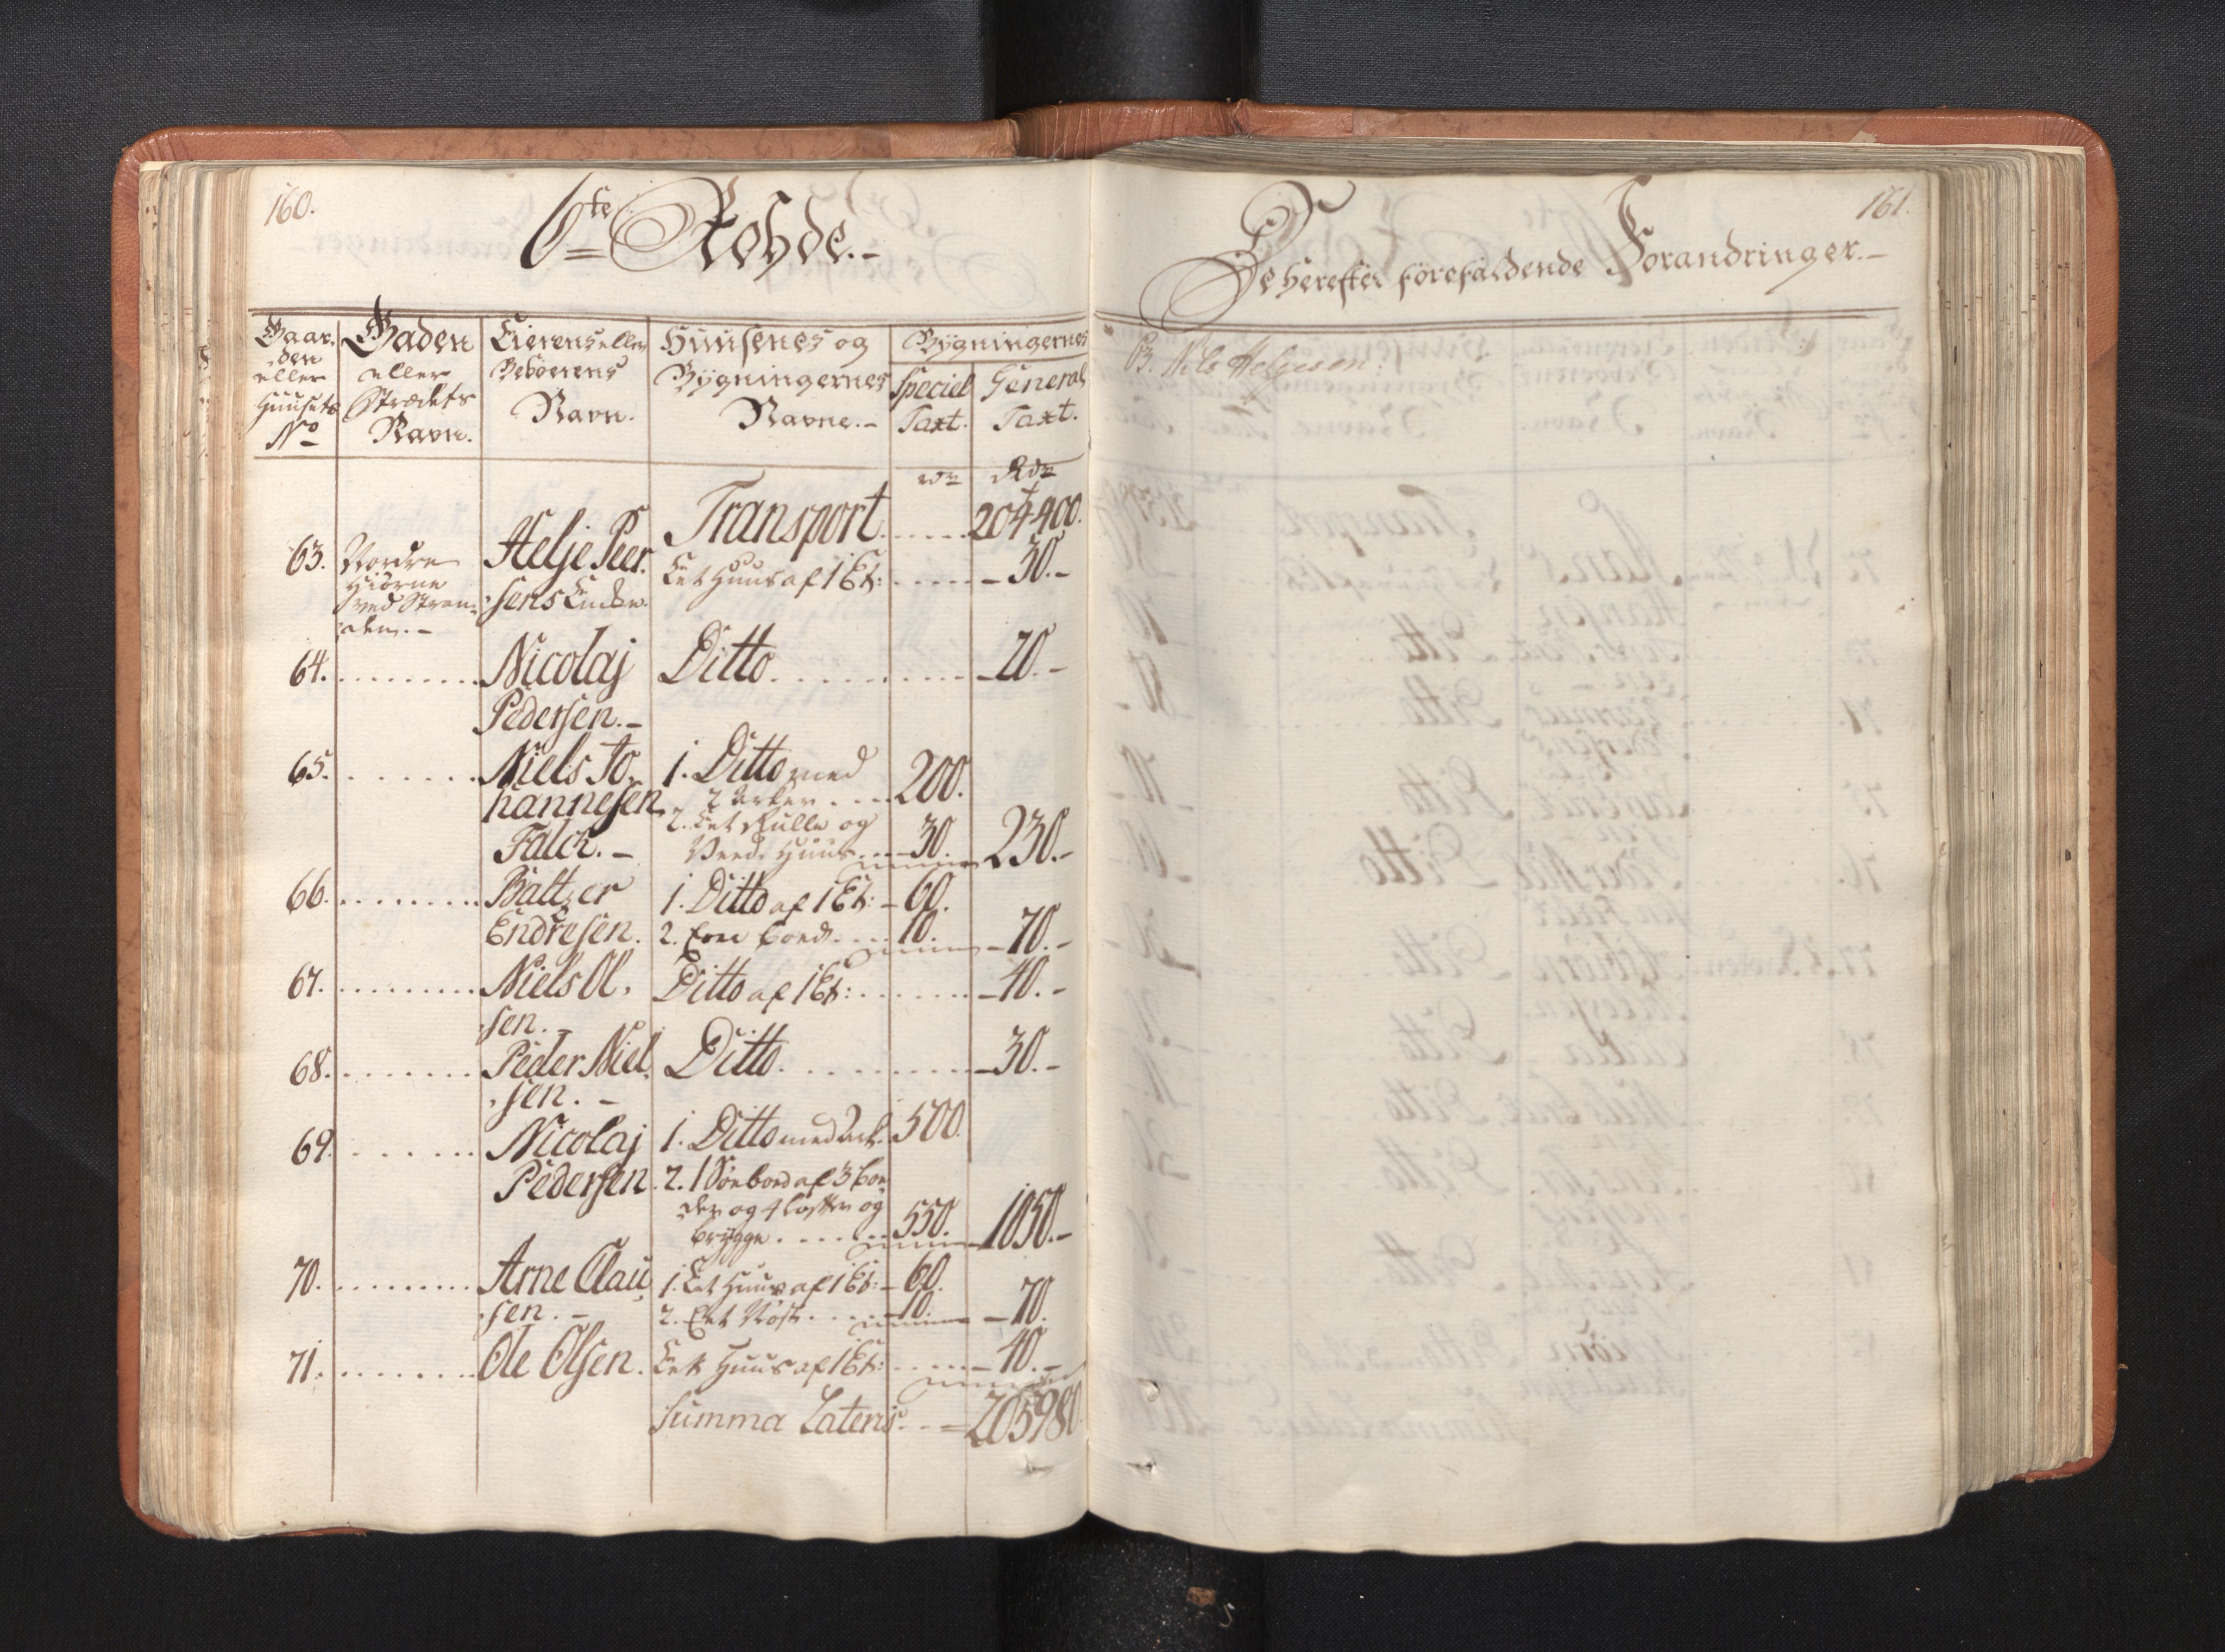 160.
6te Rohde.-
Gaar-
den
eller
Huusets
No
Gaden
eller
Strædets
Navn.
Eierens eller
Beboerens
Navn.
Huusenes og
Bygningernes
Navne.-
Bygningernes
Speciel
Taxt.
General
Taxt.
Rdr
Transport 204400.
63. Nordre
Hiörne
ved Stran-
den.-
Helje Peer-
sens Enke.
Eet Huus af 1 Et: 30.-
64. Nicolaj
Pedersen.-
Ditto 20.-
65. Niels Jo-
hannesen
Falck.-
1. Ditto med
2 Arker 200.
2. Eet Rulle og
Veed Huus 30. 230.-
66. Baltzer
Endresen.
1. Ditto af 1 Et: 60.
2. Een boed 10. 70.-
67. Niels Ol-
sen.-
Ditto af 1 Et: 40.-
68. Peder Niel-
sen.-
Ditto 30.-
69. Nicolaj
Pedersen.
1. Ditto med Ark. 500.
2. 1 Söeboed af 3 boe-
der og 4 lofter og
brygge 550. 1050.-
70. Arne Clau-
sen.-
1. Eet Huus af 1 Et: 60.
2. Eet Nöst 10. 70.
71. Ole Olsen. Eet Huus af 1 Et: 40.-
Summa Lateris 205980
161.
De herefter forefaldende Forandringer.-
B. Nils Helgesen.